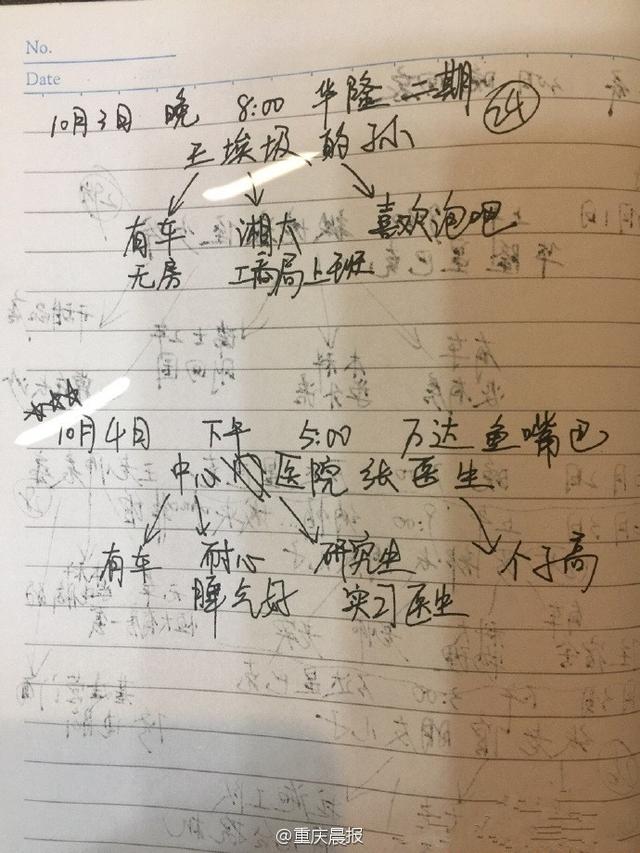 No.
Date
10月3日 晚 8:00 华隆二期 24
王埃圾的孙
有车 湘大 喜欢泡吧
无房 工商局上班
10月4日 下午 5:00 万达鱼嘴巴
中心医院张医生
有车 耐心 研究生 个子高
脾气好 实习医生
@重庆晨报